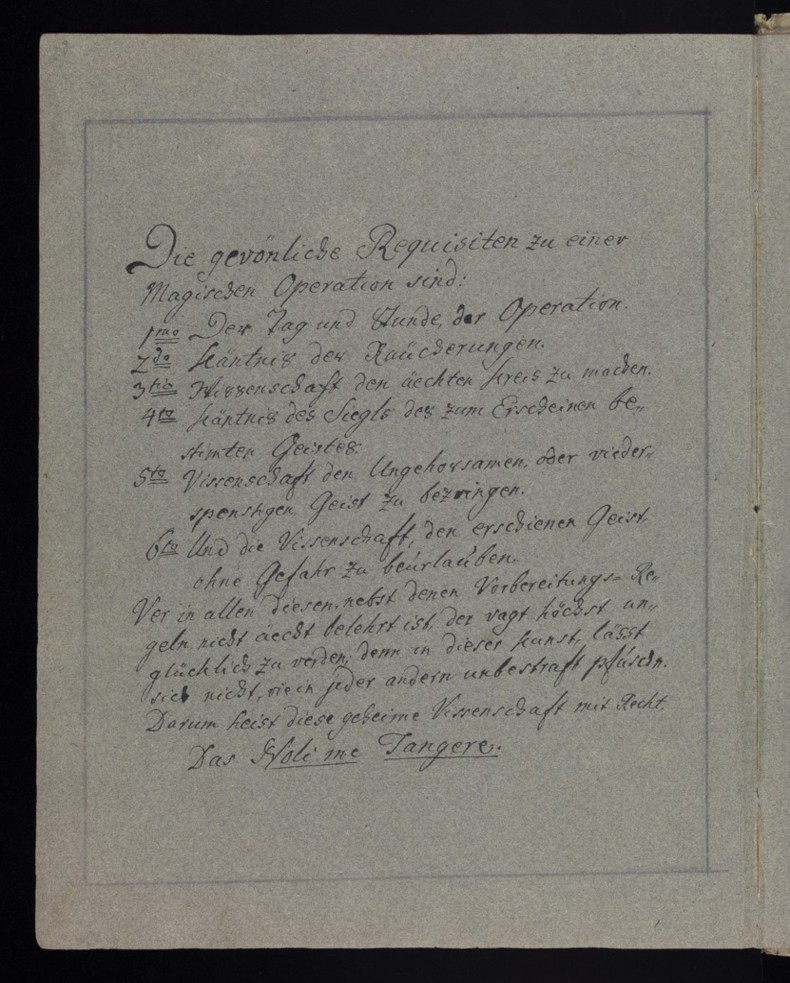 Die gevönliche Requisiten zu einer
Magischen Operation sind:
1mo Der Tag und Stunde, der Operation.
2do Käntnis der Raücherungen.
3tio Wissenschaft den äechten Kreis zu machen.
4to Käntnis des Siegls des zum Erscheinen be„
stimten Geistes.
5to Vissenschaft den Ungehorsamen, oder vieder„
spenstigen Geist zu bezvingen.
6to Und die Vissenschaft, den erschienen Geist,
ohne Gefahr zu beürlaüben.
Ver in allen diesen, nebst denen Vorbereitungs„ Re„
geln nicht äecht belehrt ist, der vagt höchst un„
glücklich zu verden; denn in dieser Kunst, lässt
sich nicht, vie in jeder andern unbestraft pfüschn.
Darum heist diese geheime Vissenschaft mit Recht,
Das Noli me Tangere.